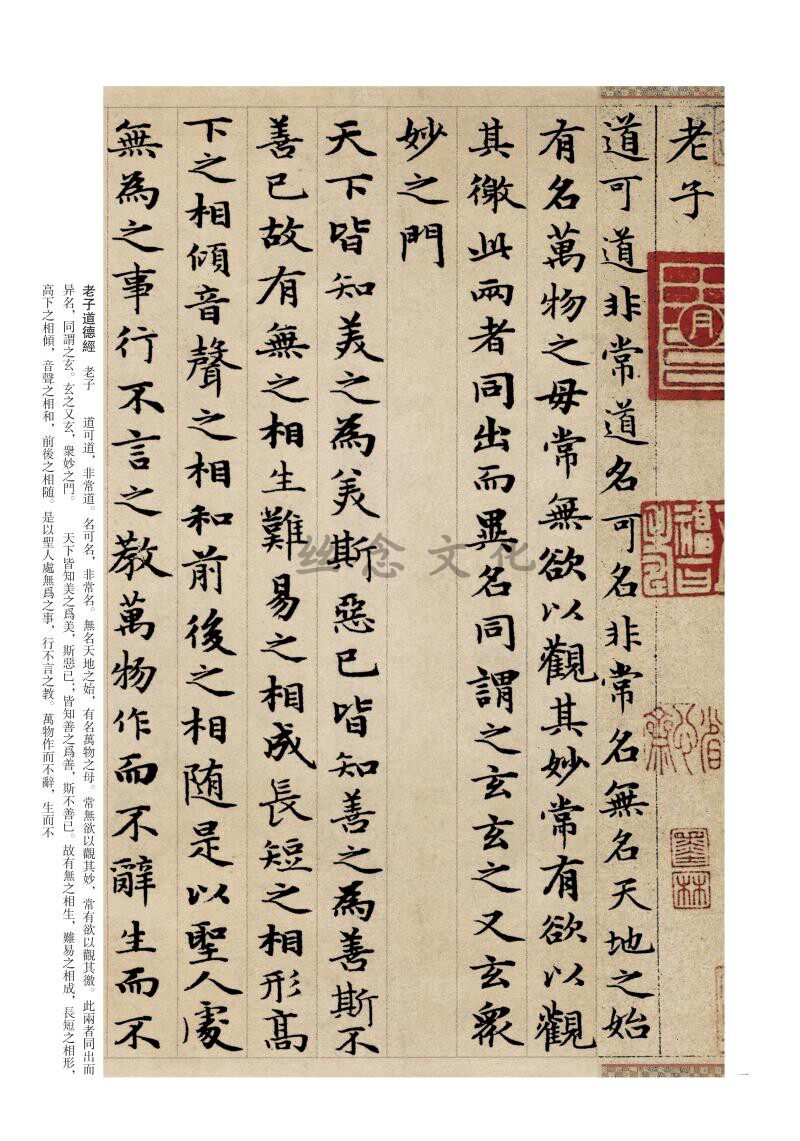 老子
道可道非常道名可名非常名無名天地之始
有名萬物之母常無欲以觀其妙常有欲以觀
其徼此兩者同出而異名同謂之玄玄之又玄衆
妙之門
天下皆知美之為美斯惡已皆知善之為善斯不
善已故有無之相生難易之相成長短之相形高
下之相傾音聲之相和前後之相随是以聖人處
無為之事行不言之教萬物作而不辭生而不
墨林
絲念文化
老子道德經 老子 道可道，非常道。名可名，非常名。無名天地之始，有名萬物之母。常無欲以觀其妙，常有欲以觀其徼。此兩者同出而
异名，同謂之玄。玄之又玄，衆妙之門。 天下皆知美之爲美，斯惡已；皆知善之爲善，斯不善已。故有無之相生，難易之相成，長短之相形，
高下之相傾，音聲之相和，前後之相随。是以聖人處無爲之事，行不言之教。萬物作而不辭，生而不
一